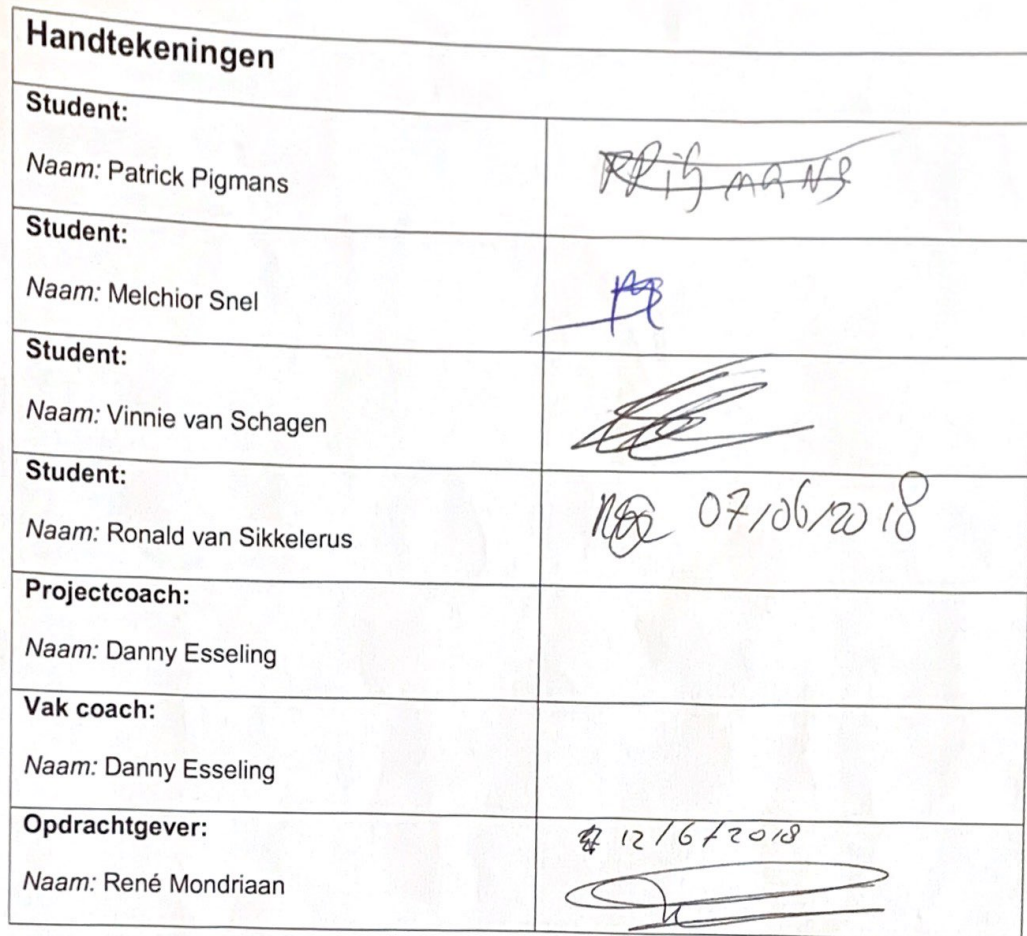 Handtekeningen
Student:
Naam: Patrick Pigmans
PPigMANS
Student:
Naam: Melchior Snel
Student:
Naam: Vinnie van Schagen
Student:
Naam: Ronald van Sikkelerus
07/06/2018
Projectcoach:
Naam: Danny Esseling
Vak coach:
Naam: Danny Esseling
Opdrachtgever:
Naam: René Mondriaan
12/6/2018